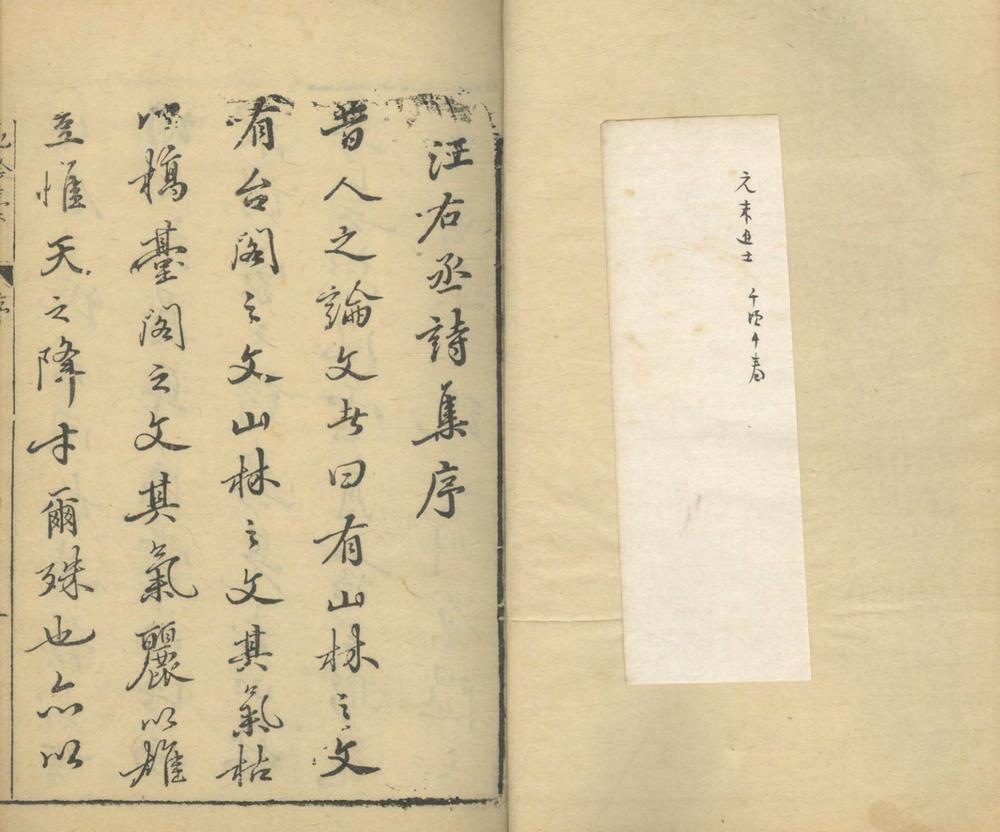 元末进士
汪右丞詩集序
昔人之論文者曰有山林之文
有台閣之文山林之文其氣枯
以槁臺閣之文其氣麗以雄
豈惟天之降才爾殊也亦以